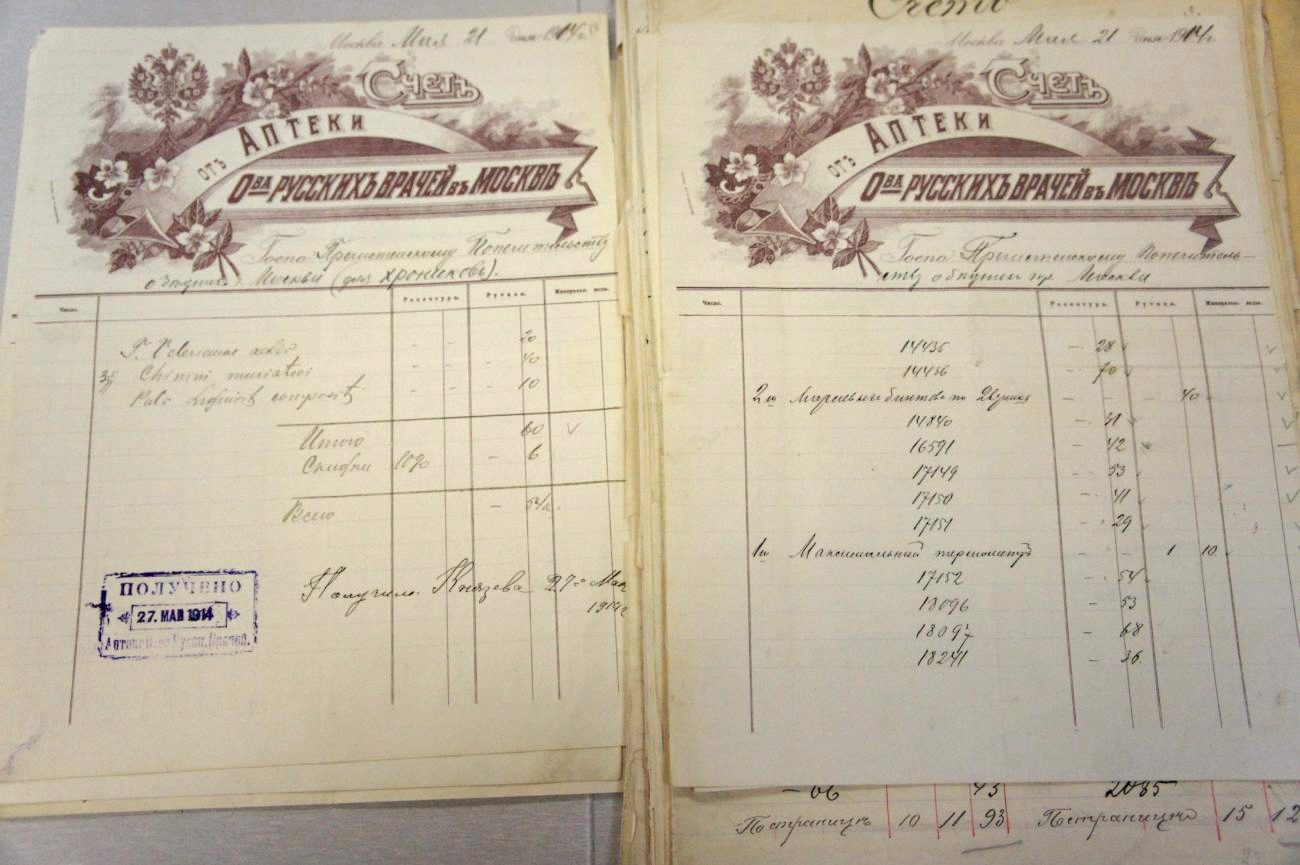 Москва Мая 21 дня 1914 г.
Счетъ
отъ Аптеки
О-ва Русскихъ Врачей въ Москвѣ
Госпо Пречистенскому Попечительству
о бѣдныхъ г. Москвы (для хрониковъ).
Число. Рецептура. Ручная. Минеральн. воды.
T. Valerianae - - 20
Chinini muriatici - - - 40
Pulv Liquirit composit - - - 10
Итого 60
Скидки 10% - 6
Всего - 54
Получила Князева 27го Мая
1914 г
ПОЛУЧЕНО
27. МАЯ 1914
Аптека О-ва Русск. Врачей.
Счетъ
Москва Мая 21 дня 1914 г.
Счетъ
отъ Аптеки
О-ва Русскихъ Врачей въ Москвѣ
Госпо Пречистенскому Попечитель-
ству о бѣдныхъ Москвы
Число. Рецептура. Ручная. Минеральн. воды.
14435 - 28
14436 - 70
2 Марлевыхъ бинтовъ - - - 40
14840 - 31
16591 - 42
17149 - 53
17150 - 41
17151 - 29
1 Максимальный термометръ - - 1 10
17152 - 54
18096 - 53
18097 - 68
18241 - 36
- 06 43 2085
По страницѣ 10 11 93 По страницѣ 15 12